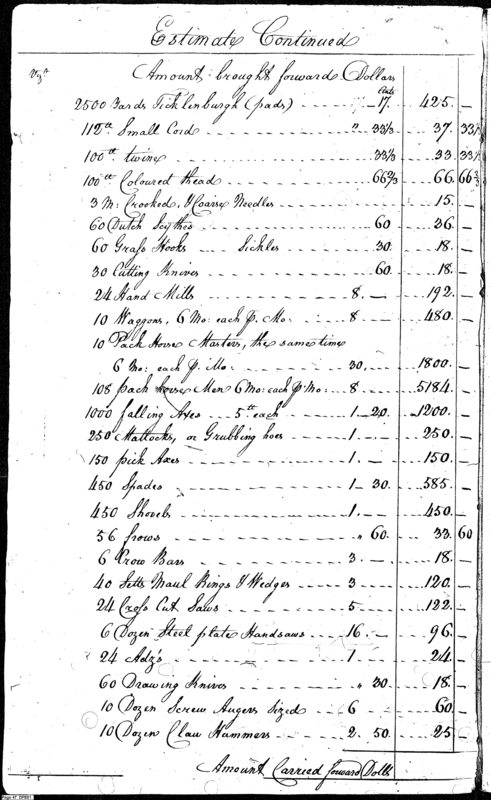 Estimate Continued
Amount brought forward Dollars
Cents
2500 Yards Ticklenburgh (pads) " 17. 425. —
112 lb Small Cord " 33⅓ 37. 33⅓
100 lb twine 33⅓ 33. 33⅓
100 lb Coloured thead 66⅔ 66. 66⅔
3 M: Crooked, & Coarse Needles 15. —
60 Dutch Scythes 60 36. —
60 Grass Hooks Sickles 30. 18. —
30 Cutting Knives 60. 18. —
24 Hand Mills 8. — 192. —
10 Waggons, 6 Mo: each p. Mo. 8 — 480. —
10 Pack Horse Masters, the same time
6 Mo: each p. Mo: 30. 1800. —
108 pack horse Men 6 Mo: each p. Mo: 8 5184. —
1000 falling Axes 5 lb each 1 20. 1200. —
250 Mattocks, or Grubbing hoes 1. — 250. —
150 pick Axes 1. — 150. —
450 Spades 1 30. 585. —
450 Shovels 1. 450. —
56 frows " 60. 33. 60
6 Crow Bars 3 — 18. —
40 Setts Maul Rings & Wedges 3 — 120. —
24 Cross Cut Saws 5 122. —
6 Dozen Steel plate Handsaws 16. — 96. —
24 Adz's 1 24. —
60 Drawing Knives " 30 18. —
10 Dozen Screw Augers Sized 6 60. —
10 Dozen Claw Hammers 2. 50. 25 —
Amount Carried forward Dolls